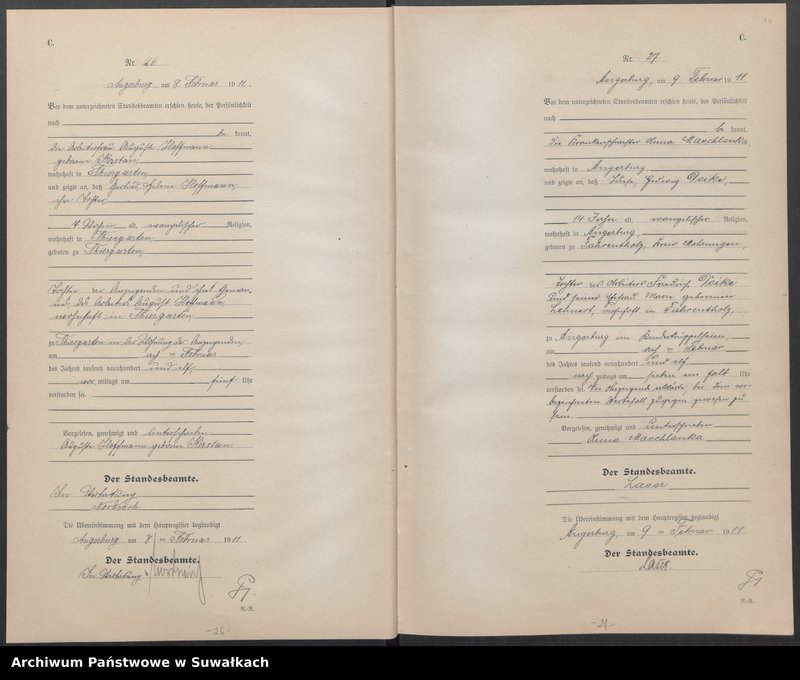 C.
Nr. 26
Angerburg am 8 Februar 1911.
Vor dem unterzeichneten Standesbeamten erschien heute, der Persönlichkeit
nach
be kannt,
die Arbeiterfrau Auguste Hoffmann
geborene
wohnhaft in Thiergarten
und zeigte an, daß Gertrud Helene Hoffmann,
ihre Tochter
Wochen alt, evangelischer Religion,
wohnhaft in Thiergarten
geboren zu Thiergarten
Tochter der Anzeigenden und ihres
des Arbeiters August Hoffmann,
wohnhaft in Thiergarten
zu Thiergarten in der Wohnung der Anzeigenden
am acht ten Februar
des Jahres tausend neunhundert und elf,
vor mittags um fünf Uhr
verstorben sei.
Vorgelesen, genehmigt und unterschrieben
Auguste Hoffmann geborene
Der Standesbeamte.
In Vertretung
Die Übereinstimmung mit dem Hauptregister beglaubigt
Angerburg am 8 ten Februar 1911.
Der Standesbeamte.
In Vertretung
N.-R.
-26-
14
C.
Nr. 27
Angerburg, am 9 Februar 1911.
Vor dem unterzeichneten Standesbeamten erschien heute, der Persönlichkeit
nach
be kannt,
die Krankenschwester Anna Maschlanka
wohnhaft in Angerburg,
und zeigte an, daß Hedwig Deike,
14 Jahre alt, evangelischer Religion,
wohnhaft in Angerburg,
geboren zu Fahrentholz, Kreis Mohrungen,
Tochter des Arbeiters Friedrich Deike
und seiner Ehefrau Marie geborenen
Lehnert, wohnhaft in Fahrentholz,
zu Angerburg im Kinderkrüppelheim,
am acht ten Februar
des Jahres tausend neunhundert und elf
nach mittags um sieben ein halb Uhr
verstorben sei. Die Anzeigende erklärte bei dem vor-
bezeichneten Sterbefall zugegen gewesen zu
sein
Vorgelesen, genehmigt und unterschrieben
Anna Maschlanka
Der Standesbeamte.
Die Übereinstimmung mit dem Hauptregister beglaubigt
Angerburg, am 9 ten Februar 1911.
Der Standesbeamte.
N.-R.
Archiwum Państwowe w Suwałkach